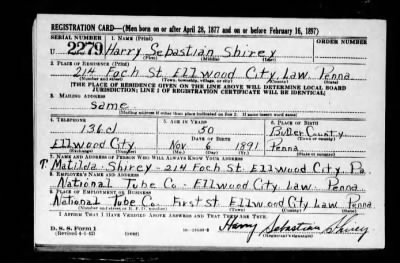 REGISTRATION CARD—(Men born on or after April 28, 1877 and on or before February 16, 1897)
SERIAL NUMBER 1. NAME (Print)
U 2279 Harry Sebastian Shirey
(First) (Middle) (Last)
2. PLACE OF RESIDENCE (Print)
214 Foch St. Ellwood City, Law. Penna
(Number and street) (Town, township, village, or city) (County) (State)
[THE PLACE OF RESIDENCE GIVEN ON THE LINE ABOVE WILL DETERMINE LOCAL BOARD
JURISDICTION; LINE 2 OF REGISTRATION CERTIFICATE WILL BE IDENTICAL]
3. MAILING ADDRESS
Same
[Mailing address if other than place indicated on line 2. If same insert word same]
4. TELEPHONE 5. AGE IN YEARS 6. PLACE OF BIRTH
136J 50 Butler County
DATE OF BIRTH (Town or county)
Ellwood City Nov 6 1891 Penna
(Exchange) (Number) (Mo.) (Day) (Yr.) (State or country)
7. NAME AND ADDRESS OF PERSON WHO WILL ALWAYS KNOW YOUR ADDRESS
Matilda - Shirey - 214 Foch St. Ellwood City, Pa.
8. EMPLOYER'S NAME AND ADDRESS
National Tube Co. - Ellwood City Law. Penna.
9. PLACE OF EMPLOYMENT OR BUSINESS
National Tube Co. First St. Ellwood City Law. Penna.
(Number and street or R. F. D. number) (Town) (County) (State)
I AFFIRM THAT I HAVE VERIFIED ABOVE ANSWERS AND THAT THEY ARE TRUE.
D. S. S. Form 1
(Revised 4-1-42) (over)
Harry Sebastian Shirey
(Registrant's signature)